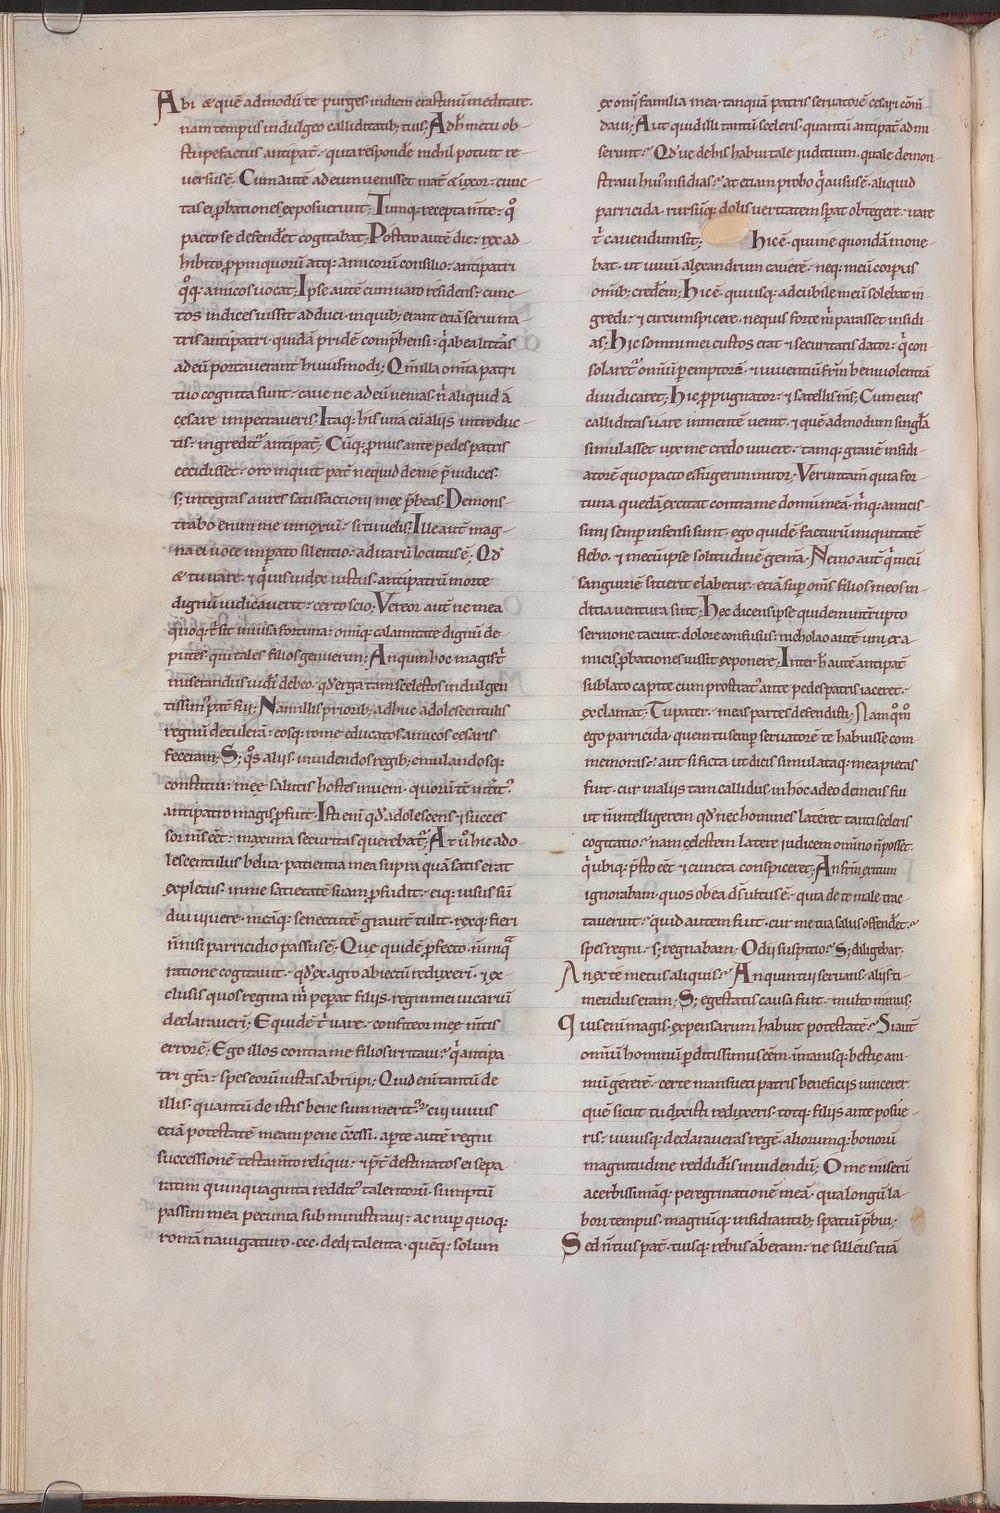 Abi & quē admodū te purges· in diem crastinū meditare·
nam tempus indulgeo calliditatib; tuis; Ad h̄ metu ob-
stupefactus antipat̄· quia respondē nichil potuit re-
versus ē· Cum autē ad eum venisset mat̄ & uxor· cunc-
tas ei p̄bationes exposuerunt; Tunq; recepta m̄te· q̊
pacto se defendet cogitabat; Postero autē die· rex ad-
hibito p̄pinquorū atq; amicorū consilio· antipatri
q̊q; amicos vocat; Ipse autē cum varo residens· cunc-
tos indices iussit adduci· in quib; erant etiā serui ma-
tris antipatri· quidā pridē comp̄hensi· q̄ ab ea litt̄as
ad eū portauerant huiusmodi; Qm̄ illa om̄ia patri
tuo cognita sunt· cave ne ad eū venias· n̄ aliquid a
cesare impetraveris; Itaq; his una cū aliis introduc-
tis· ingreditᷣ antipat̄; Cūq; pronus ante pedes patris
cecidisset· oro inquit pat̄ ne quid de me p̄iudices·
s; integras aures satisfactioni meę p̄beas; Demons-
trabo enim me innoxiū· si tu uelis; Ille aut̄ mag-
na ei voce imperato silentio· ad varū locutus ē; Qđ
& tu vare· & q̄vis iudex iustus· antipatrū morte
dignū iudicaverit· certo scio; Vereor aut̄ ne mea
quoq; t̄ sit invisa fortuna· om̄iq; calamitate dignū de-
putes· qui tales filios genuerim; An quin hoc magis t̄
miserandus uideri debeo· qđ erga tam scelestos indulgen
tissim᷒ pat̄ fui; Nam illis priorib; adhuc adolescentulis
regnū detulerā· eosq; rome educatos amicos cesaris
feceram; S; q̊s aliis inuidendos regib; emulandosq;
constitui· meę salutis hostes inueni· quorū t̄ē int̄it᷒
antipatro magis p̄fuit; Isti eni qđ adolescens & succes
sor m̄s eēt· maxima securitas querebat᷒; At ū hic ado-
lescentulus belua· patientia mea supra quā satis erat
expletus· in me satietatē suam p̄fudit· eiq; uisus sū
diu uiuere· meāq; senectutē graut̄ tulit· rexq; fieri
n̄ nisi parricidio passus ē; Que quidē p̄fecto n̄unq̄
ratione cogitauit· qđ ex agro abiectū reduxeri· & ex-
clusis quos regina m̄ pepat filiis· regni mei vicariū
declaraveri; Equidē t̄ vare· confiteor meę m̄tis
errorē; Ego illos contra me filios irritavi· q̄ antipa-
tri gr̄a· spes eorū iustas abripui; Quid eni tantū de
illis· quantū de istis bene sum merit᷒? cui uiuus
etiā potestatē meam pene c̄cessi· aperte autē regni
successionē testam̄to reliqui· & p̄t̄ destinatos ei sepa
ratim quinquaginta redditᷣ talentorū· sumptū
passim mea pecunia subministraui· ac nup quoq;
romā navigaturo ·ccc· dedi talenta· quēq; solum
ex om̄i familia mea· tanquā patris servatorē cesari com̄-
daui; Aut quid illi tantū sceleris· quantū antipat̄ admi
serunt? Qđve de his habui tale iuditium· quale demon-
straui hui᷒ insidias? at etiam probo q̄ ausus ē aliquid
parricida· rursusq; dolis veritatem sperat obtegere· vare
t̄ cavendum sit; Hic ē· qui me quondā mone-
bat· ut uiuū alexandrum cauerē· neq; meū corpus
om̄ib; crederē; Hic ē· qui usq; ad cubile meū solebat in-
gredi· & circumspicere· ne quis forte m̄ parasset insidi-
as; Hic somni mei custos erat & securitatis dator· q̄ con-
solaretᷣ omiū pemptorē· & uiuentiū fr̄m beniuolentiā
diiudicaret; Hic p̄pugnator· & satelles m̄s; Cum eius
calliditas vare in mentē venit· & quē admodum singl̄a
simulasset· vix me credo uiuere· tamq; grauē insidi-
atorē quo pacto effugerim miror; Veruntam̄ quia for-
tuna quedā excitat contra me domū meā· m̄q; amicis-
simi semp infensi sunt· ego quidē facturū iniquitatē
flebo· & mecū ipse solitudinē gemā; Nemo aut̄ q̄ meū
sanguinē sitierit elabetur· etiā sup om̄s filios meos in-
ditia uentura sint; Hęc dicens ipse quidem int̄rupto
sermone tacuit· dolore confusus· nicholao autē uni ex a-
micis p̄bationes iussit exponere; Inter h̄ autē antipat̄
sublato capite cum prostrat᷒ ante pedes patris iaceret·
exclamat; Tu pater· meas partes defendisti; Nam q̊m̊
ego parricida· quem tu semp servatorē te habuisse com
memoras? aut si ficta ut dicis simulataq; mea pietas
fuit· cur in aliis tam callidus in hoc adeo demens fui
ut n̄ intelligerem qđ nec homines lateret tanti sceleris
cogitatio? nam celestem latere judicem omnino n̄ posset·
q̄ ubiq; p̄sto eēt & cuncta conspiceret; An fr̄m exitium
ignorabam· quos ob ea d̄s ultus ē· quia de te male trac-
taverunt? quid autem fuit· cur me tua salus offendet?
spes regni· s; regnabam; Odii suspitio? S; diligebar;
An ex te metus aliquis? An quin tui seruans· aliis ti-
mendus eram; S; egestatis causa fuit· multo minus;
Quis eni magis expensarum habuit potestatē? Si aut̄
omiū hominū perditissimus eēm· inmanisq; bestię ani-
mū gererē· certe mansueti patris beneficiis uincerer·
quē sicut tu dixisti reduxeris· totq; filiis ante posue-
ris· uiuusq; declaraveras regē· aliorumq; bonorū
magnitudine reddidis inuidendū; O me miserū
acerbissimāq; peregrinationē meā· qua longū la-
bori tempus· magnūq; insidiantib; spatiū p̄bui;
Sed n̄ tuis pat̄ tuisq; rebus aberam· ne silleus tuā